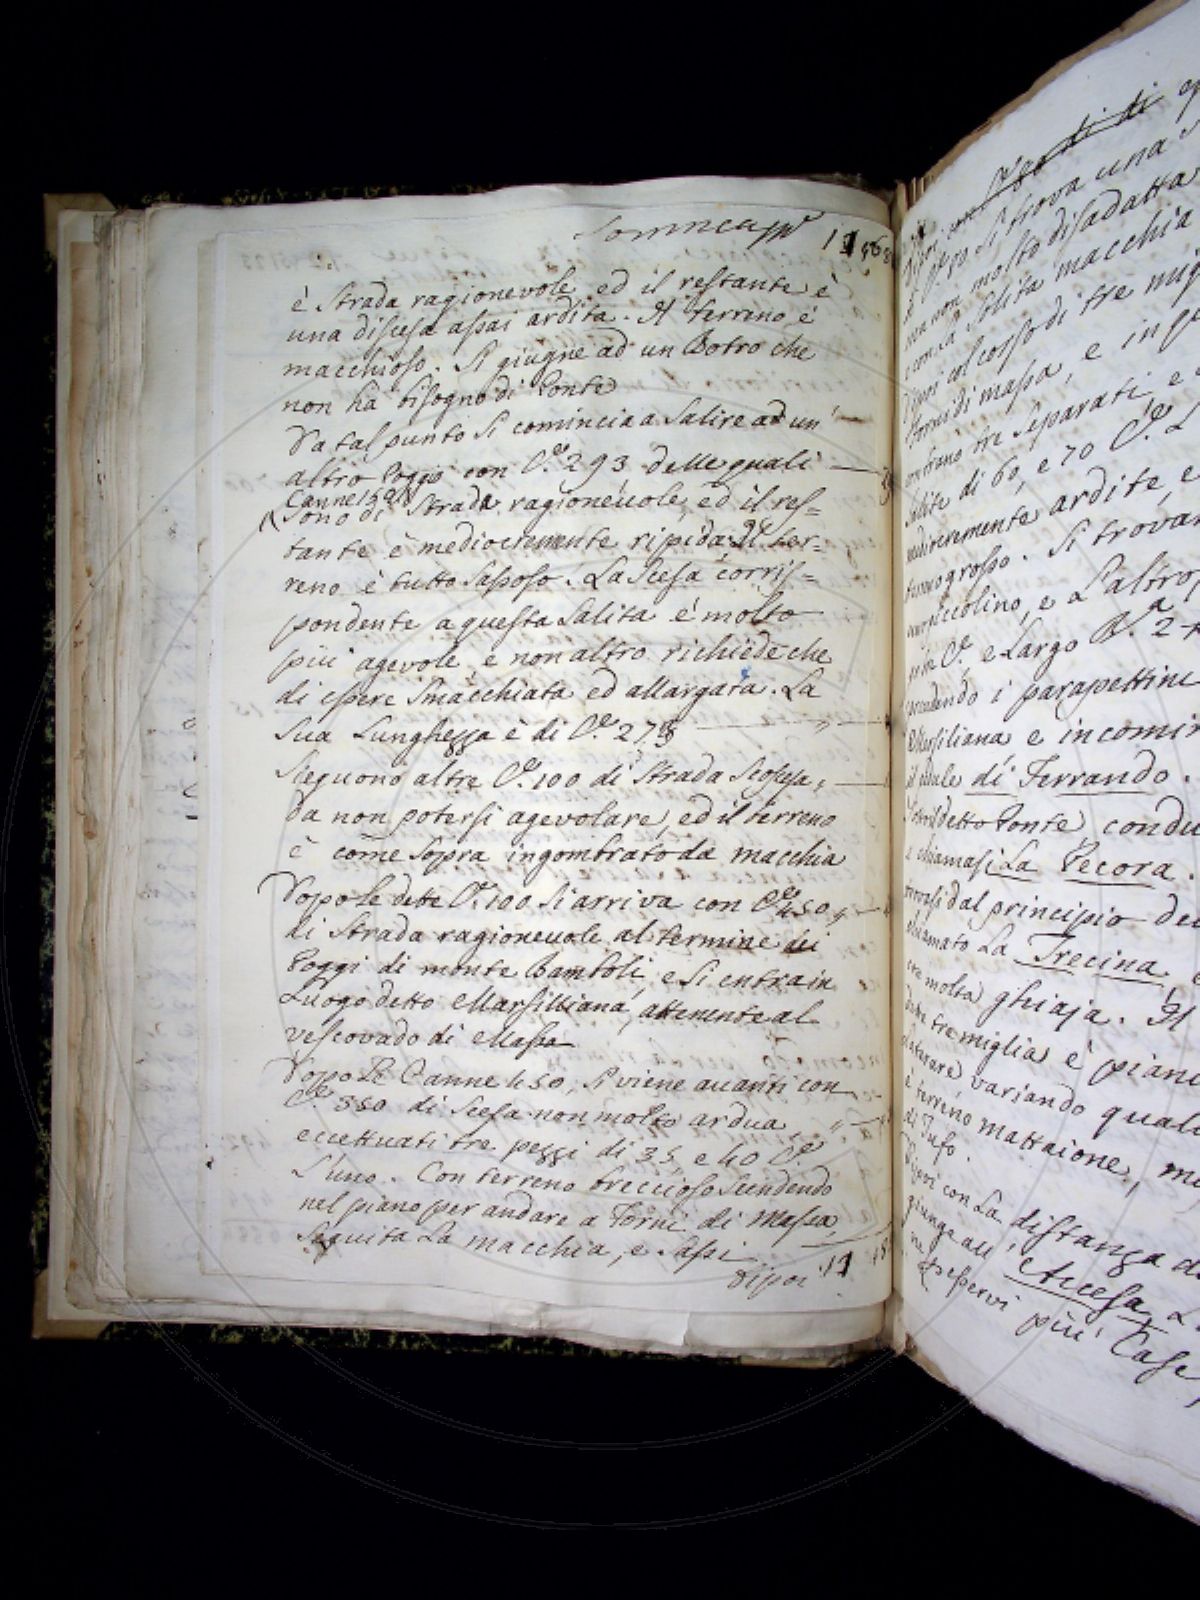 Somma
è Strada ragionevole ed il restante è
una discesa assai ardita. Il terreno è
macchioso. Si giugne ad un Botro che
non ha bisogno di Ponte
Da tal punto si comincia a Salire ad un'
altro Poggio con C.e 293 delle quali
Canne 150
Sono di Strada ragionevole, ed il res=
tante è mediocremente ripida. Il ter=
reno è tutto Sassoso. La Scesa corris=
pondente a questa Salita è molto
più agevole e non altro richiede che
di essere Smacchiata ed allargata. La
Sua Lunghezza è di C.e 275
Sieguono altre C.e 100 di Strada Scosesa,
da non potersi agevolare, ed il terreno
è come Sopra ingombrato da macchia
Dopo le dette C.e 100 Si arriva con C.e 450
di Strada ragionevole al termine dei
Poggi di monte Bamboli, e Si entra in
Luogo detto Marsilliana, attenente al
Vescovado di Massa
Dopo Le Canne 450, Si viene avanti con
C.e 550 di Scesa non molto ardua,
eccettuati tre pezzi di 35 e 40 C.e
L'uno. Con terreno breccioso Scendendo
nel piano per andare a Forni di Massa,
Seguita La macchia, e Sassi
Dipoi
di di
si trova una
ma non molto disadatta
con La Solita macchia
col corso di tre mig
Forni di massa, e in
tre Separati, e
Salite di 60, e 70 C.e
mediocremente ardite, e
grosso. Si trovan
piccolino, e L'altro
C.e e Largo B.a 2
i parapettini
Marsiliana e incomin
il quale di Ferrando.
detto Ponte condu
e chiamasi La Pecora.
dal principio de
chiamato La Trecina
molta ghiaja. Il
tre miglia è pian
variando quali
terreno mattaione, m
di Tufo.
Dipoi con La distanza d
giunge all' Accesa
esservi più Case,